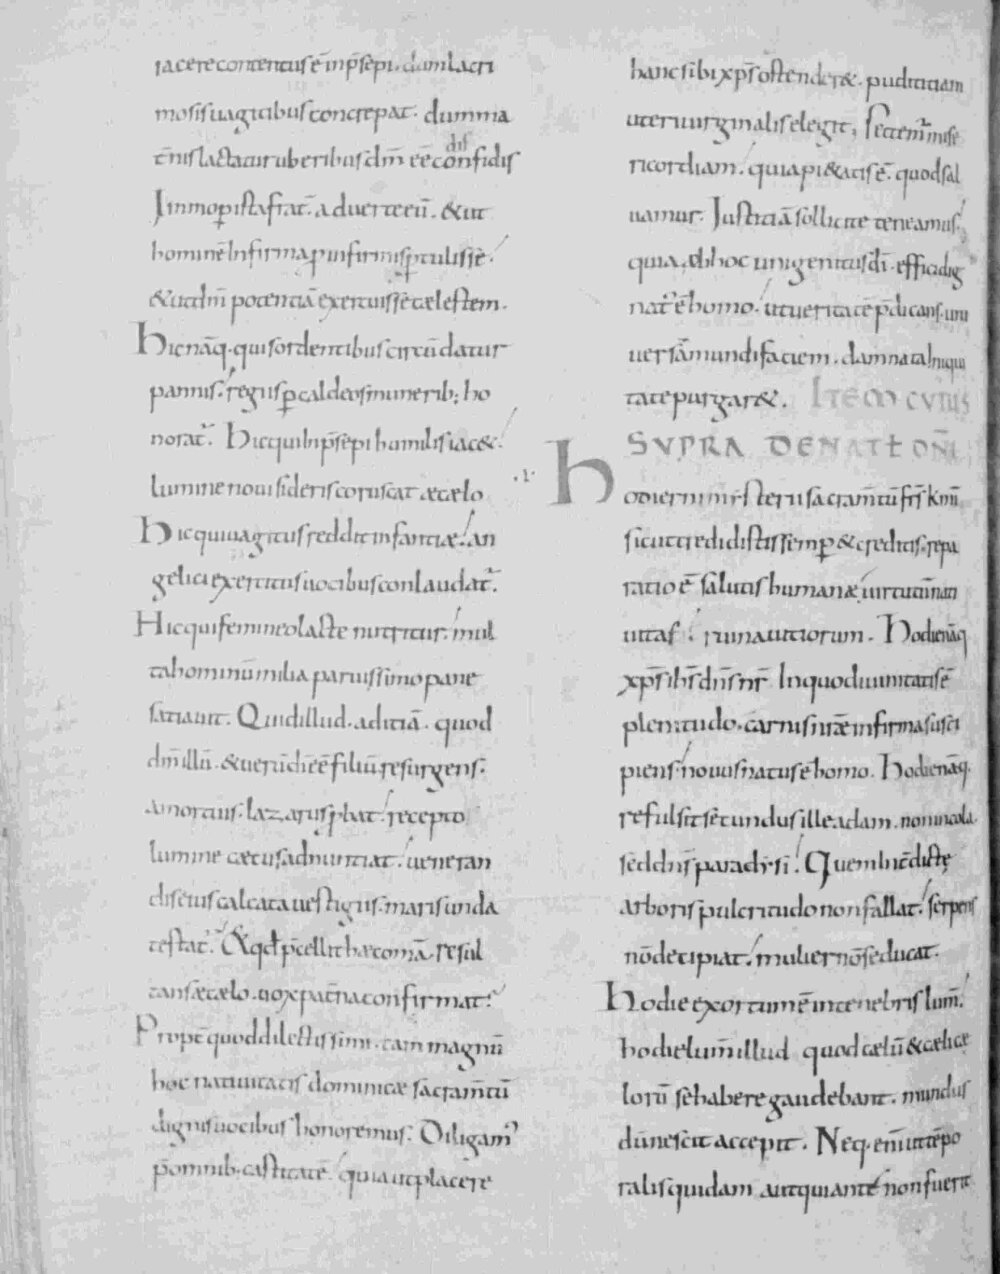 iacere contentus ē inp̄sepi. dum lacri
mosis uagitibus concrepat. dum ma
t̄nis lactatur uberibus dm̄ eē confidis
Immo ꝑ ista fiat̄ aduerte eū. & ut
hominē infirma ꝑ infirmis ꝑtulissē.
& ut dm̄ potentiā exercuissē cælestem.
Hic nāq. qui sordentibus circūdatur
pannis. regiis ꝑ caldeos munerib; ho
norat̄. Hic qui inp̄sepi humilis iac&.
lumine noui sideris coruscat æ cælo
Hic qui uagitus reddit infantiæ. an
gelici exercitus uocibus conlaudat̄.
Hic qui femineo lacte nutritur. mul
ta hominū milia paruissimo pane
satiauit. Quid illud. adiciā. quod
dm̄ illū. & uerū dī eē filiū resurgens.
a mortuis. lazarus ꝓbat. recepto
lumine cæcus adnuntiat. ueneran
dis eius calcata uestigiis. maris unda
testat̄. & qđ p̄cellit hæc omā. resul
tans æ cælo. uox pat̄na confirmat.
Propt̄ quod dilectissimi. tam magnū
hoc natiuitatis dominicæ sacram̄tū
dignis uocibus honoremus. Diligam'
p̄ omnib. castitatē. quia ut placere
hanc sibi xp̄s ostender&. pudicitiam
uteri uirginalis elegit. Sectem̄ mise
ricordiam. quia pi&atis ē. quod sal
uamur. Iustitiā sollicite teneamus.
quia ad hoc unigenitus dī. effici dig
nat̄ ē homo. ut ueritatē p̄dicans. uni
uersā mundi faciem. damnata iniqui
tate purgar&. ITEM CVIVS
SVPRA DE NATŁ DNĪ
.v. Hodierni mysterii sacram̄tū fr̄s km̄i
sicut credidistis semꝑ & creditis. repa
ratio ē salutis humanæ. uirtutū nati
uitas. ruina uitiorum. Hodie nāq
xp̄s ih̄s dn̄s nr̄ In quo diuinitatis ē
plenitudo. carnis nr̄æ infirma susci
piens. nouus natus ē homo. Hodie nāq.
refulsit secundus ille adam. non incola
sed dn̄s paradysi. Quem inc̄dictę
arboris pulcritudo non fallat. serpens
nō decipiat. mulier nō seducat.
Hodie exortum ē in tenebris lum̄.
hodie lum̄ illud quod cælū & cælicæ
lorū se habere gaudebant. mundus
dū nescit accepit. Neq. enī ut tēpo
ralis quidam aut qui ante non fuerit